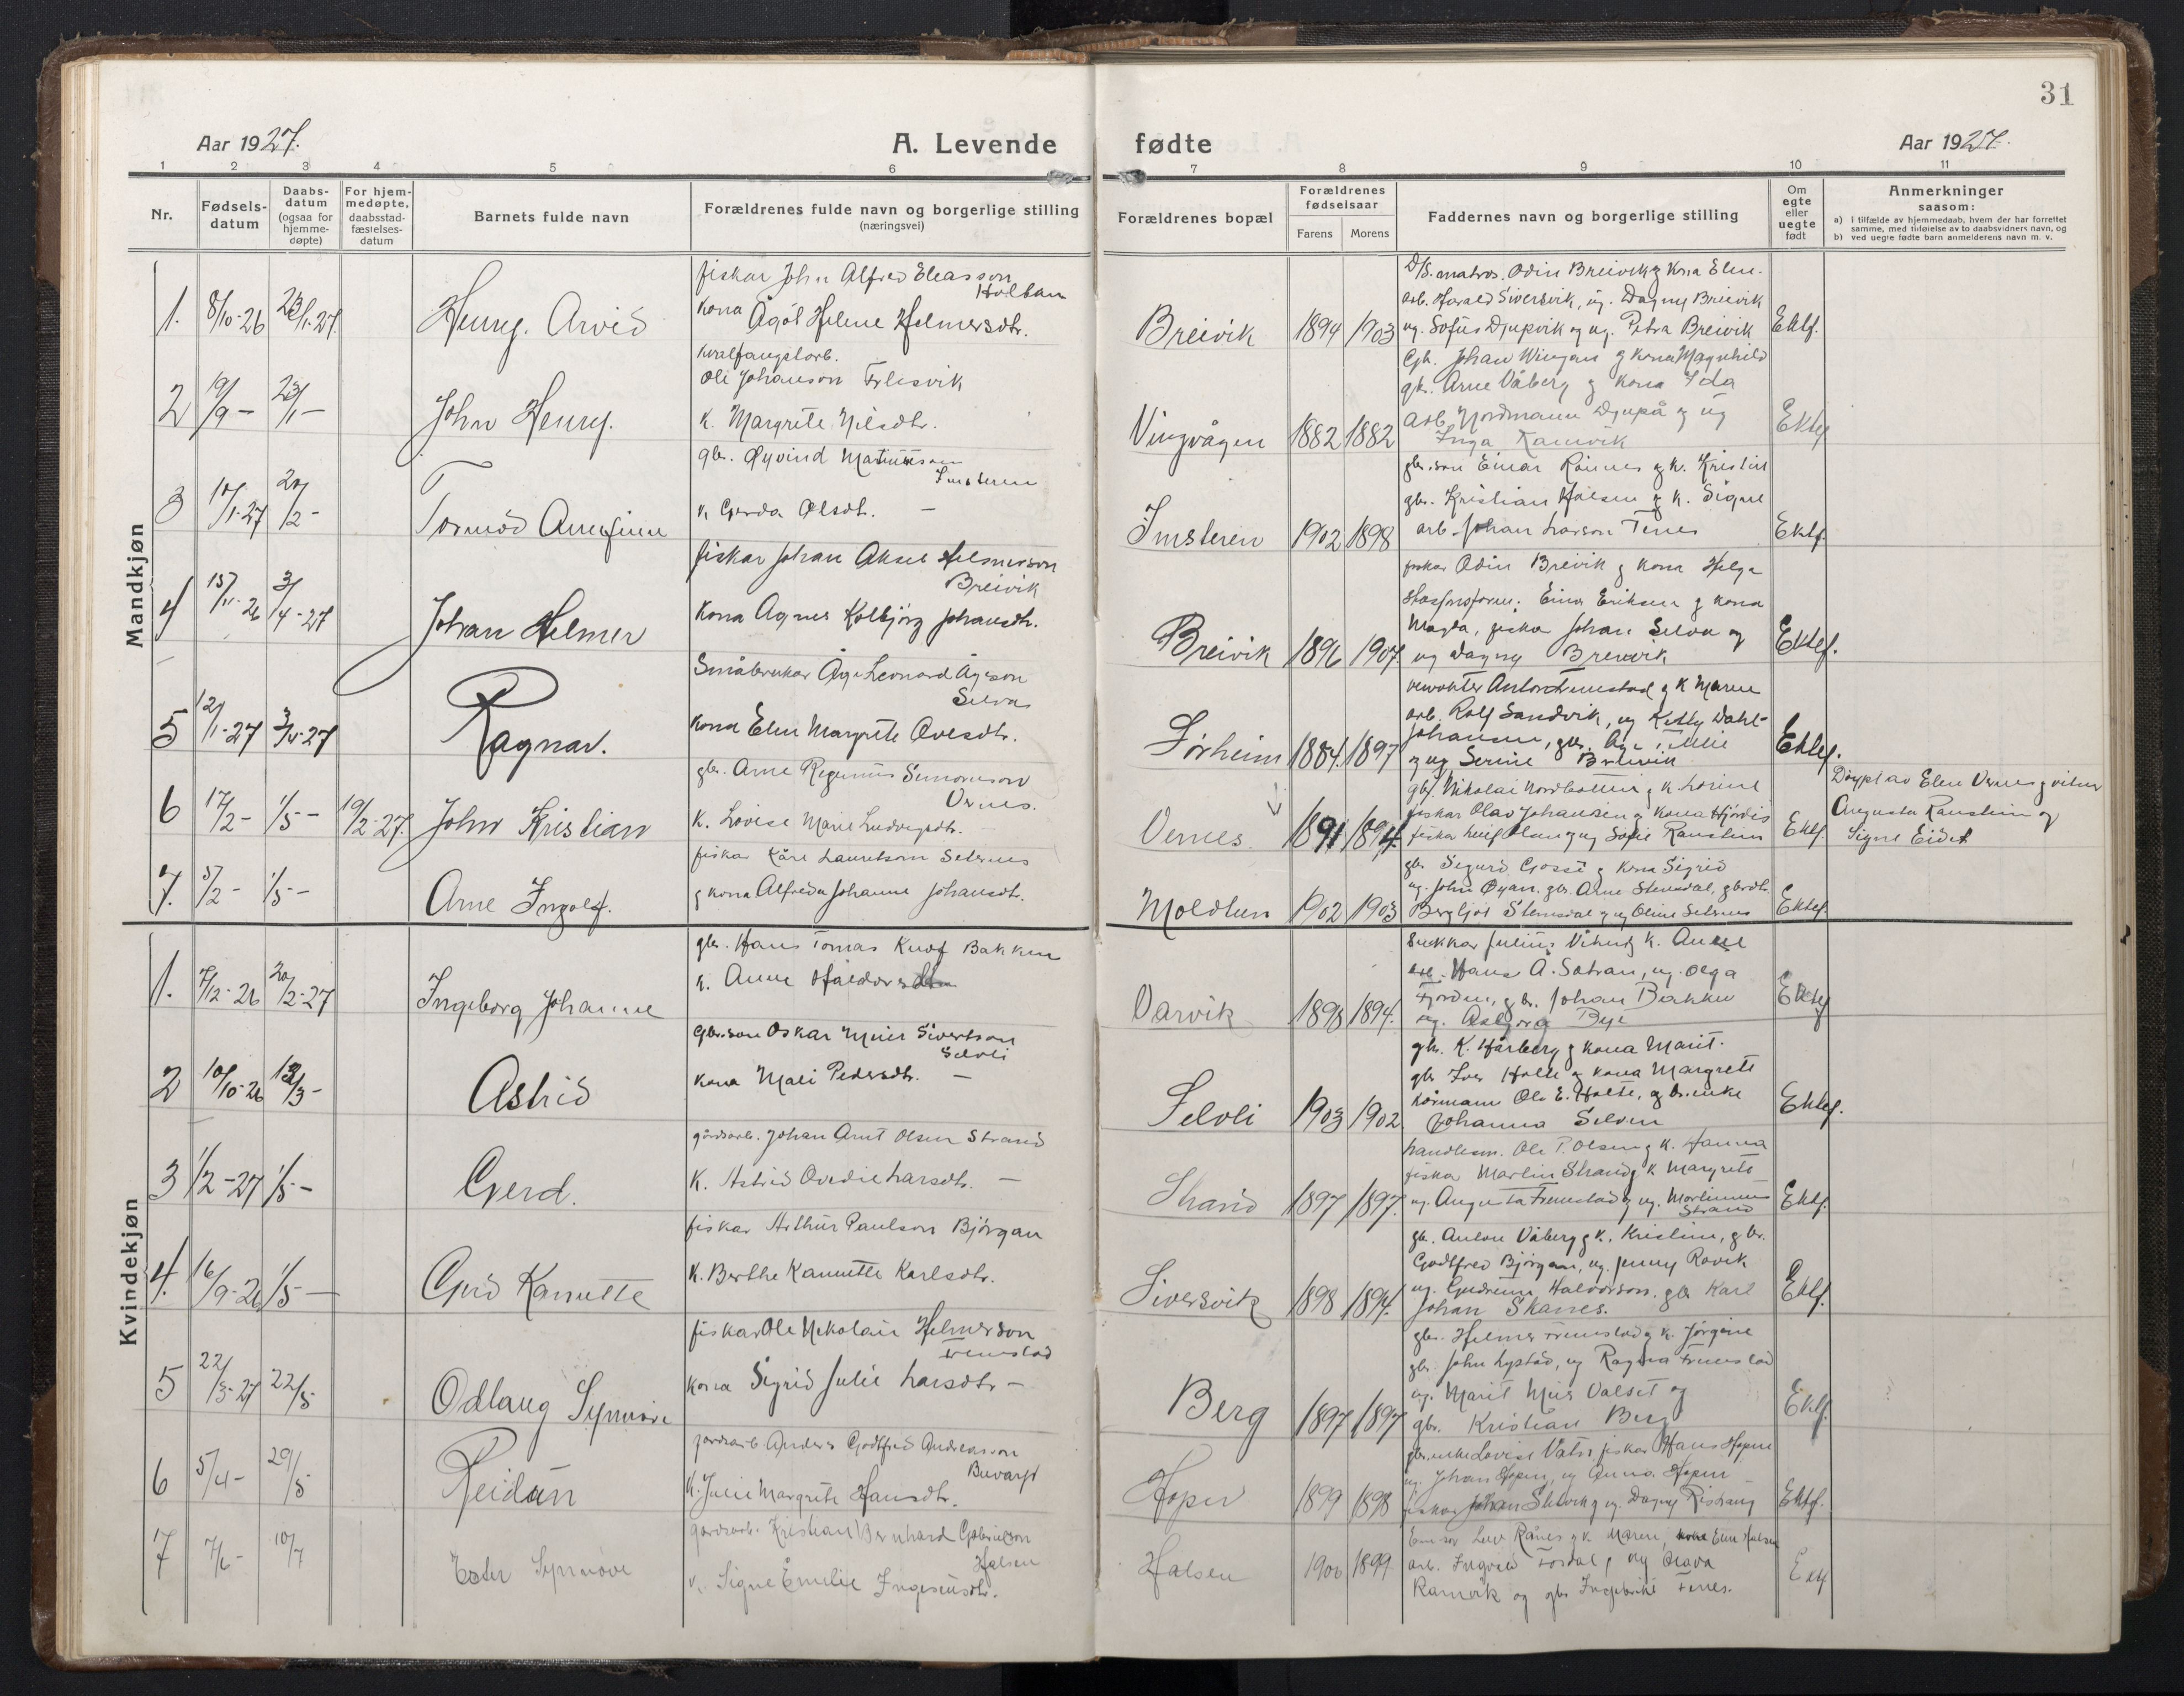 31
Aar 1927.
A. Levende fødte
Aar 1927.
1 2 3 4 5 6 7 8 9 10 11
Nr.
Fødsels-
datum
Daabs-
datum
(ogsaa for
hjemme-
døpte)
For hjem-
medøpte,
daabsstad-
fæstelses-
datum
Barnets fulde navn
Forældrenes fulde navn og borgerlige stilling
(næringsvei)
Forældrenes bopæl
Forældrenes
fødselsaar
Farens Morens
Faddernes navn og borgerlige stilling
Om
egte
eller
uegte
født
Anmerkninger
saasom:
a) i tilfælde av hjemmedaab, hvem der har forrettet
samme, med tilføielse av to daabsvidners navn, og
b) ved uegte fødte barn anmelderens navn m. v.
Mandkjøn
1. 8/10-26 23/1-27.
Henry. Arvid
fiskar John Alfred Eleasson
kona Ågot Helene Helmersdtr.
Breivik
1894 1903
D/S. matros. Odin Breivik g kona Elen.
arb. Harald Siversvik, ug. Dagny Breivik
ug. Sofus Djupvik og ug. Petra Breivik
Ektf.
2 19/9 - 23/1 -
John Henry.
kvalfangstarb.
Ole Johanson
k. Margrete Nilsdtr.
Vingvågen
1882 1882
Gbr. Johan Wingan g kona Magnhild
gbr. Arne Våberg g kona Ida
arb. Nordmann Djupå og ug
Inga Ramvik
Ektf
3 10/1-27 20/2 -
Tormod Arnefinn
gbr. Øyvind
Imsteren
k. Gerda Olsdtr. -
Imsteren
1902 1898
gbr.son Einar Rønnes g k. Kristin
gbr. Kristian Halsen g k. Signe
arb. Johan Larson Tenes
Ektf.
4 15/11-26 3/4-27
Johan Helmer
fiskar Johan Aksel Helmerson
Breivik
kona Agnes Kolbjørg Johansdtr.
Breivik
1896 1907
fiskar Odin Breivik g kona Helga
Einar Eriksen g kona
Magda, fiskar Johan Selva og
ug Dagny Breivik
Ektef.
5 12/1-27 3/4-27
Ragnar.
Småbrukar Åge Leonard Ageson
Selva
kona Elen Margrete Ovesdtr.
Sørheim
1884. 1897
Anton Fremstad g k Maren
arb. Rolf Sandvik, ug Kitty Dahl-
Johansen, gbr.
g ug Serine
Ektef.
6 17/2 - 1/5 - 19/2-27.
John Kristian
gbr. Arne Simonson
Vernes.
k. Lovise Marie Ludvigsdtr.
Vernes.
1891 1894.
gbr. Nikolai Nordbotten g k. Lorine
fiskar Olav Johansen g kona Hjördis
fiskar Leif Olsen g ug Sofie Ranstein
Ektf.
Døypt av Elen Vernes g vitner
Augusta Ranstein og
Signe Eidet
7. 5/2 - 1/5 -
Arne Ingolf.
fiskar Kåre Lauritson Seternes
g kona Alfreda Johanne Johansdtr.
Moldtun
1902 1903
gbr Sigurd Gossé g kona Sigrid
ug. John Øyan. gbr. Arne Stemsdal, gbrdtr.
Bergljot Stemsdal g ug Oline Seternes
Ektef.
Kvindekjøn
1. 7/12-26 20/2-27
Ingeborg Johanne
gbr. Hans Tomas Knof Bakken
k. Anne
Varvik
1898 1894.
Julius
arb. Hans A. Sætran, ug. Olga
Fjorden, gbr. Johan Bakken
ug. Asbjørg Bye
Ektef
2 10/10-26 13/3 -
Astrid
Gbr.son Oskar Meier Sivertson
Selvli
kona Mali Pedersdtr. -
Selvli
1903 1902
gbr. K. Hårberg g kona Marit.
gbr Iver Holte g kona Margrete
Ole E. Holte, gbr.enke
Johanna Selven
Ektef.
3 1/2-27 1/5 -
Gerd.
gårdsarb. Johan Arnt Olsen Strand
k. Astrid Ovedie Larsdtr. -
Strand
1897 1897.
handlesm. Ole P. Olsen g k. Hanna
fiskar Martin Strand g k Margrete
ug. Augusta Fremstad g ug. Martinus
Strand
Ektf.
4. 16/9-26 1/5 -
Gurid Kanutte
fiskar Arthur Paulson Bjørgan
k. Berthe Kanutte Karlsdtr.
Siversvik
1898 1894.
gbr. Anton Våberg g k. Kristine, gbr.
Godtfred Bjørgan, ug. Jenny Rovik
ug. Gudrun Halvorson. gbr Karl
Johan Skarnes.
Ektf.
5 22/3-27 22/5
Odlaug Synnøve
fiskar Ole Nikolai Helmerson
Fremstad
kona Sigrid Julie Larsdtr -
Berg
1897 1897
gbr. Helmer Fremstad g k. Jørgine
gbr. John Lystad, ug Ragna Fremstad
ug. Marit Valset og
gbr. Kristian Berg
Ektf.
6 5/4 - 29/5
Reidun
gardsarb Anders Godtfred Andreasson
k. Julie Margrete Hansdtr.
Hopen
1899 1898
gbr.enke Lovise fiskar Hans Hopen
ug. Johan Hopen, ug Anna Hopen
fiskar Johan Selvik g ug. Dagny
Ektf.
7 7/6 - 10/7
Ester Synnøve
gardsarb. Kristian Bernhard Gabrielson
Halsen
k. Signe Emilie
Halsen
1900 1899
Rånes g k. Maren, Elen Halsen
arb. Ingvald Fordal, ug Olava
Ramvik og gbr Tenes.
Ektf